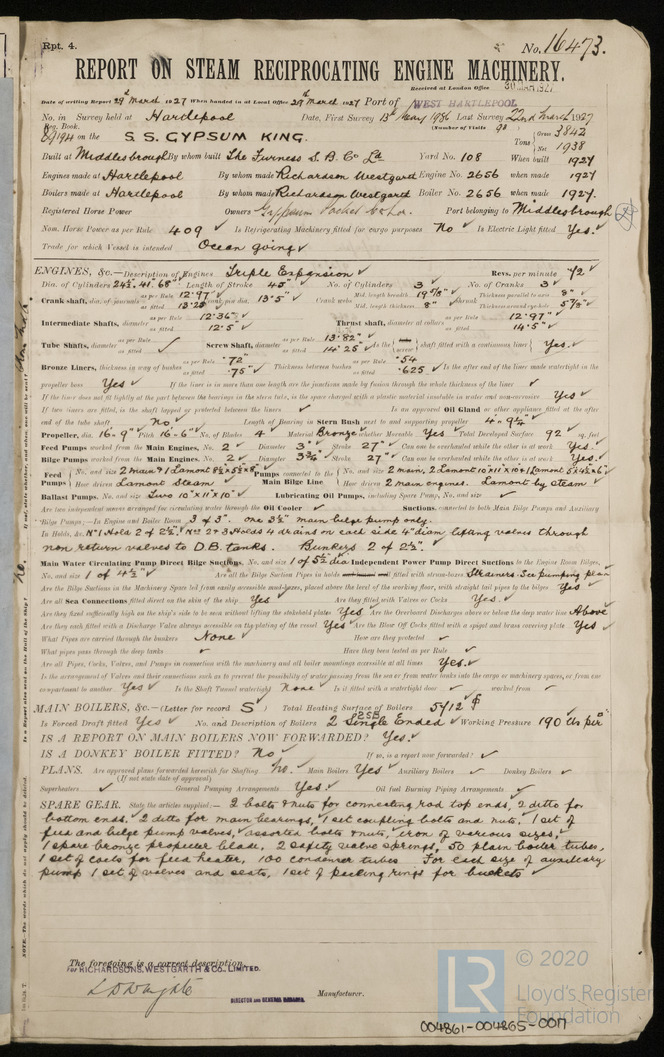 Rpt. 4.
No. 16473.
REPORT ON STEAM RECIPROCATING ENGINE MACHINERY.
Received at London Office 30 MAR 1927
Date of writing Report 29th March 1927 When handed in at Local Office 29th March 1927 Port of WEST HARTLEPOOL
No. in Survey held at Hartlepool Date, First Survey 13th May 1926 Last Survey 22nd March 1927
Reg. Book. (Number of Visits 98)
on the S.S. GYPSUM KING. Tons Gross 3842 Net 1938
Built at Middlesbrough By whom built The Furness S.B. Co Ld Yard No. 108 When built 1927
Engines made at Hartlepool By whom made Richardson Westgarth Engine No. 2656 when made 1927
Boilers made at Hartlepool By whom made Richardson Westgarth Boiler No. 2656 when made 1927.
Registered Horse Power Owners Gypsum Packet Co Ltd. Port belonging to Middlesbrough
Nom. Horse Power as per Rule 409 Is Refrigerating Machinery fitted for cargo purposes No Is Electric Light fitted Yes.
Trade for which Vessel is intended Ocean going
ENGINES, &c.—Description of Engines Triple Expansion Revs. per minute 72
Dia. of Cylinders 24½. 41. 68" Length of Stroke 45" No. of Cylinders 3 No. of Cranks 3
Crank shaft, dia. of journals as per Rule 12.97" as fitted 13.25" Crank pin dia. 13.5" Crank webs Mid. length breadth 19⅝" Mid. length thickness 8" shrunk Thickness parallel to axis 8" Thickness around eye-hole 5⅞"
Intermediate Shafts, diameter as per Rule 12.36" as fitted 12.5" Thrust shaft, diameter at collars as per Rule 12.97" as fitted 14.5"
Tube Shafts, diameter as per Rule as fitted Screw Shaft, diameter as per Rule 13.82" as fitted 14.25" Is the screw shaft fitted with a continuous liner Yes.
Bronze Liners, thickness in way of bushes as per Rule .72" as fitted .75" Thickness between bushes as per Rule .54 as fitted .625 Is the after end of the liner made watertight in the
propeller boss Yes If the liner is in more than one length are the junctions made by fusion through the whole thickness of the liner
If the liner does not fit tightly at the part between the bearings in the stern tube, is the space charged with a plastic material insoluble in water and non-corrosive Yes
If two liners are fitted, is the shaft lapped or protected between the liners Is an approved Oil Gland or other appliance fitted at the after
end of the tube shaft No. Length of Bearing in Stern Bush next to and supporting propeller 4'-9½"
Propeller, dia. 16'-9" Pitch 16'-6" No. of Blades 4 Material Bronze whether Moveable Yes Total Developed Surface 92 sq. feet
Feed Pumps worked from the Main Engines, No. 2 Diameter 3" Stroke 27" Can one be overhauled while the other is at work Yes.
Bilge Pumps worked from the Main Engines, No. 2 Diameter 3¾" Stroke 27" Can one be overhauled while the other is at work Yes.
Feed Pumps No. and size 2 main & 1 Lamont 8½"x5½"x8" How driven Lamont Steam Pumps connected to the Main Bilge Line No. and size 2 main, 2 Lamont 10"x11"x10" & 1 Lamont 5"x4½"x6" How driven 2 main engines. Lamont by steam
Ballast Pumps, No. and size Two 10"x11"x10" Lubricating Oil Pumps, including Spare Pump, No. and size
Are two independent means arranged for circulating water through the Oil Cooler Suctions, connected to both Main Bilge Pumps and Auxiliary
Bilge Pumps;—In Engine and Boiler Room 3 of 3". one 3½" main bilge pump only.
In Holds, &c. No 1 Hold 2 of 2½". Nos 2 & 3 Holds 4 drains on each side 4" diam, lifting valves through
non return valves to D.B. tanks. Bunkers 2 of 2½".
Main Water Circulating Pump Direct Bilge Suctions, No. and size 1 of 5½" dia Independent Power Pump Direct Suctions to the Engine Room Bilges,
No. and size 1 of 4½" Are all the Bilge Suction Pipes in holds fitted with strum-boxes Strainers. See pumping plan
Are the Bilge Suctions in the Machinery Space led from easily accessible mud-boxes, placed above the level of the working floor, with straight tail pipes to the bilges Yes
Are all Sea Connections fitted direct on the skin of the ship Yes Are they fitted with Valves or Cocks Yes.
Are they fixed sufficiently high on the ship's side to be seen without lifting the stokehold plates Yes Are the Overboard Discharges above or below the deep water line Above
Are they each fitted with a Discharge Valve always accessible on the plating of the vessel Yes Are the Blow Off Cocks fitted with a spigot and brass covering plate Yes
What Pipes are carried through the bunkers None How are they protected
What pipes pass through the deep tanks Have they been tested as per Rule
Are all Pipes, Cocks, Valves, and Pumps in connection with the machinery and all boiler mountings accessible at all times Yes.
Is the arrangement of Valves and their connections such as to prevent the possibility of water passing from the sea or from water tanks into the cargo or machinery spaces, or from one
compartment to another Yes Is the Shaft Tunnel watertight None Is it fitted with a watertight door worked from
MAIN BOILERS, &c.—(Letter for record S) Total Heating Surface of Boilers 5412
Is Forced Draft fitted Yes No. and Description of Boilers 2 2SB Single Ended Working Pressure 190 lbs per □"
IS A REPORT ON MAIN BOILERS NOW FORWARDED? Yes.
IS A DONKEY BOILER FITTED? No If so, is a report now forwarded?
PLANS. Are approved plans forwarded herewith for Shafting No. Main Boilers Yes Auxiliary Boilers Donkey Boilers
(If not state date of approval)
Superheaters General Pumping Arrangements Yes. Oil fuel Burning Piping Arrangements
SPARE GEAR. State the articles supplied:— 2 bolts & nuts for connecting rod top ends, 2 ditto for
bottom ends, 2 ditto for main bearings, 1 set coupling bolts and nuts, 1 set of
feed and bilge pump valves, assorted bolts & nuts, iron of various sizes,
1 spare bronze propeller blade, 2 safety valve springs, 50 plain boiler tubes,
1 set of coils for feed heater, 100 condenser tubes For each size of auxiliary
pump 1 set of valves and seats, 1 set of packing rings for buckets
The foregoing is a correct description,
For RICHARDSONS, WESTGARTH & CO., LIMITED.
DIRECTOR AND GENERAL MANAGER. Manufacturer.
LR © 2020
Lloyd's Register
Foundation
004861-004865-0017